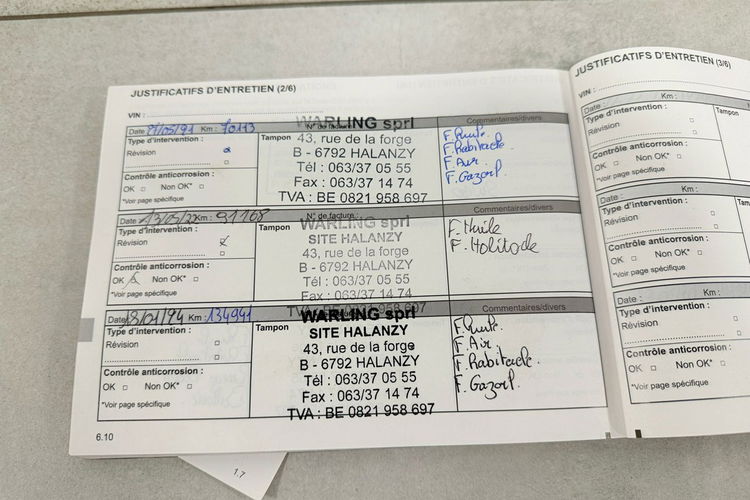 JUSTIFICATIFS D'ENTRETIEN (2/6)
VIN :
Date : Km : 70113
N° de facture
Commentaires/divers
Type d'intervention :
Révision
Contrôle anticorrosion :
OK Non OK*
*Voir page spécifique
Tampon
WARLING sprl
43, rue de la forge
B - 6792 HALANZY
Tél : 063/37 05 55
Fax : 063/37 14 74
TVA : BE 0821 958 697
F. Huile.
F. Habitacle.
F. Air.
F. Gazoil.
Date : 13/05/22 Km : 91168
N° de facture :
Commentaires/divers
Type d'intervention :
Révision
Contrôle anticorrosion :
OK Non OK*
*Voir page spécifique
WARLING sprl
SITE HALANZY
43, rue de la forge
B - 6792 HALANZY
Tél : 063/37 05 55
Fax : 063/37 14 74
F. Huile
Date Km : 134941
Commentaires/divers
Type d'intervention :
Révision
Contrôle anticorrosion :
OK Non OK*
*Voir page spécifique
Tampon
WARLING sprl
SITE HALANZY
43, rue de la forge
B - 6792 HALANZY
Tél : 063/37 05 55
Fax : 063/37 14 74
TVA : BE 0821 958 697
F. Huile.
F. Air.
F. Habitacle.
F. Gazoil.
6.10
1.7
JUSTIFICATIFS D'ENTRETIEN (3/6)
VIN :
Date : Km :
Type d'intervention :
Révision
Contrôle anticorrosion :
OK Non OK*
*Voir page spécifique
Tampon
Date : Km :
Type d'intervention :
Révision
Contrôle anticorrosion :
OK Non OK*
*Voir page spécifique
Date : Km :
Type d'intervention :
Révision
Contrôle anticorrosion :
OK Non OK*
*Voir page spécifique